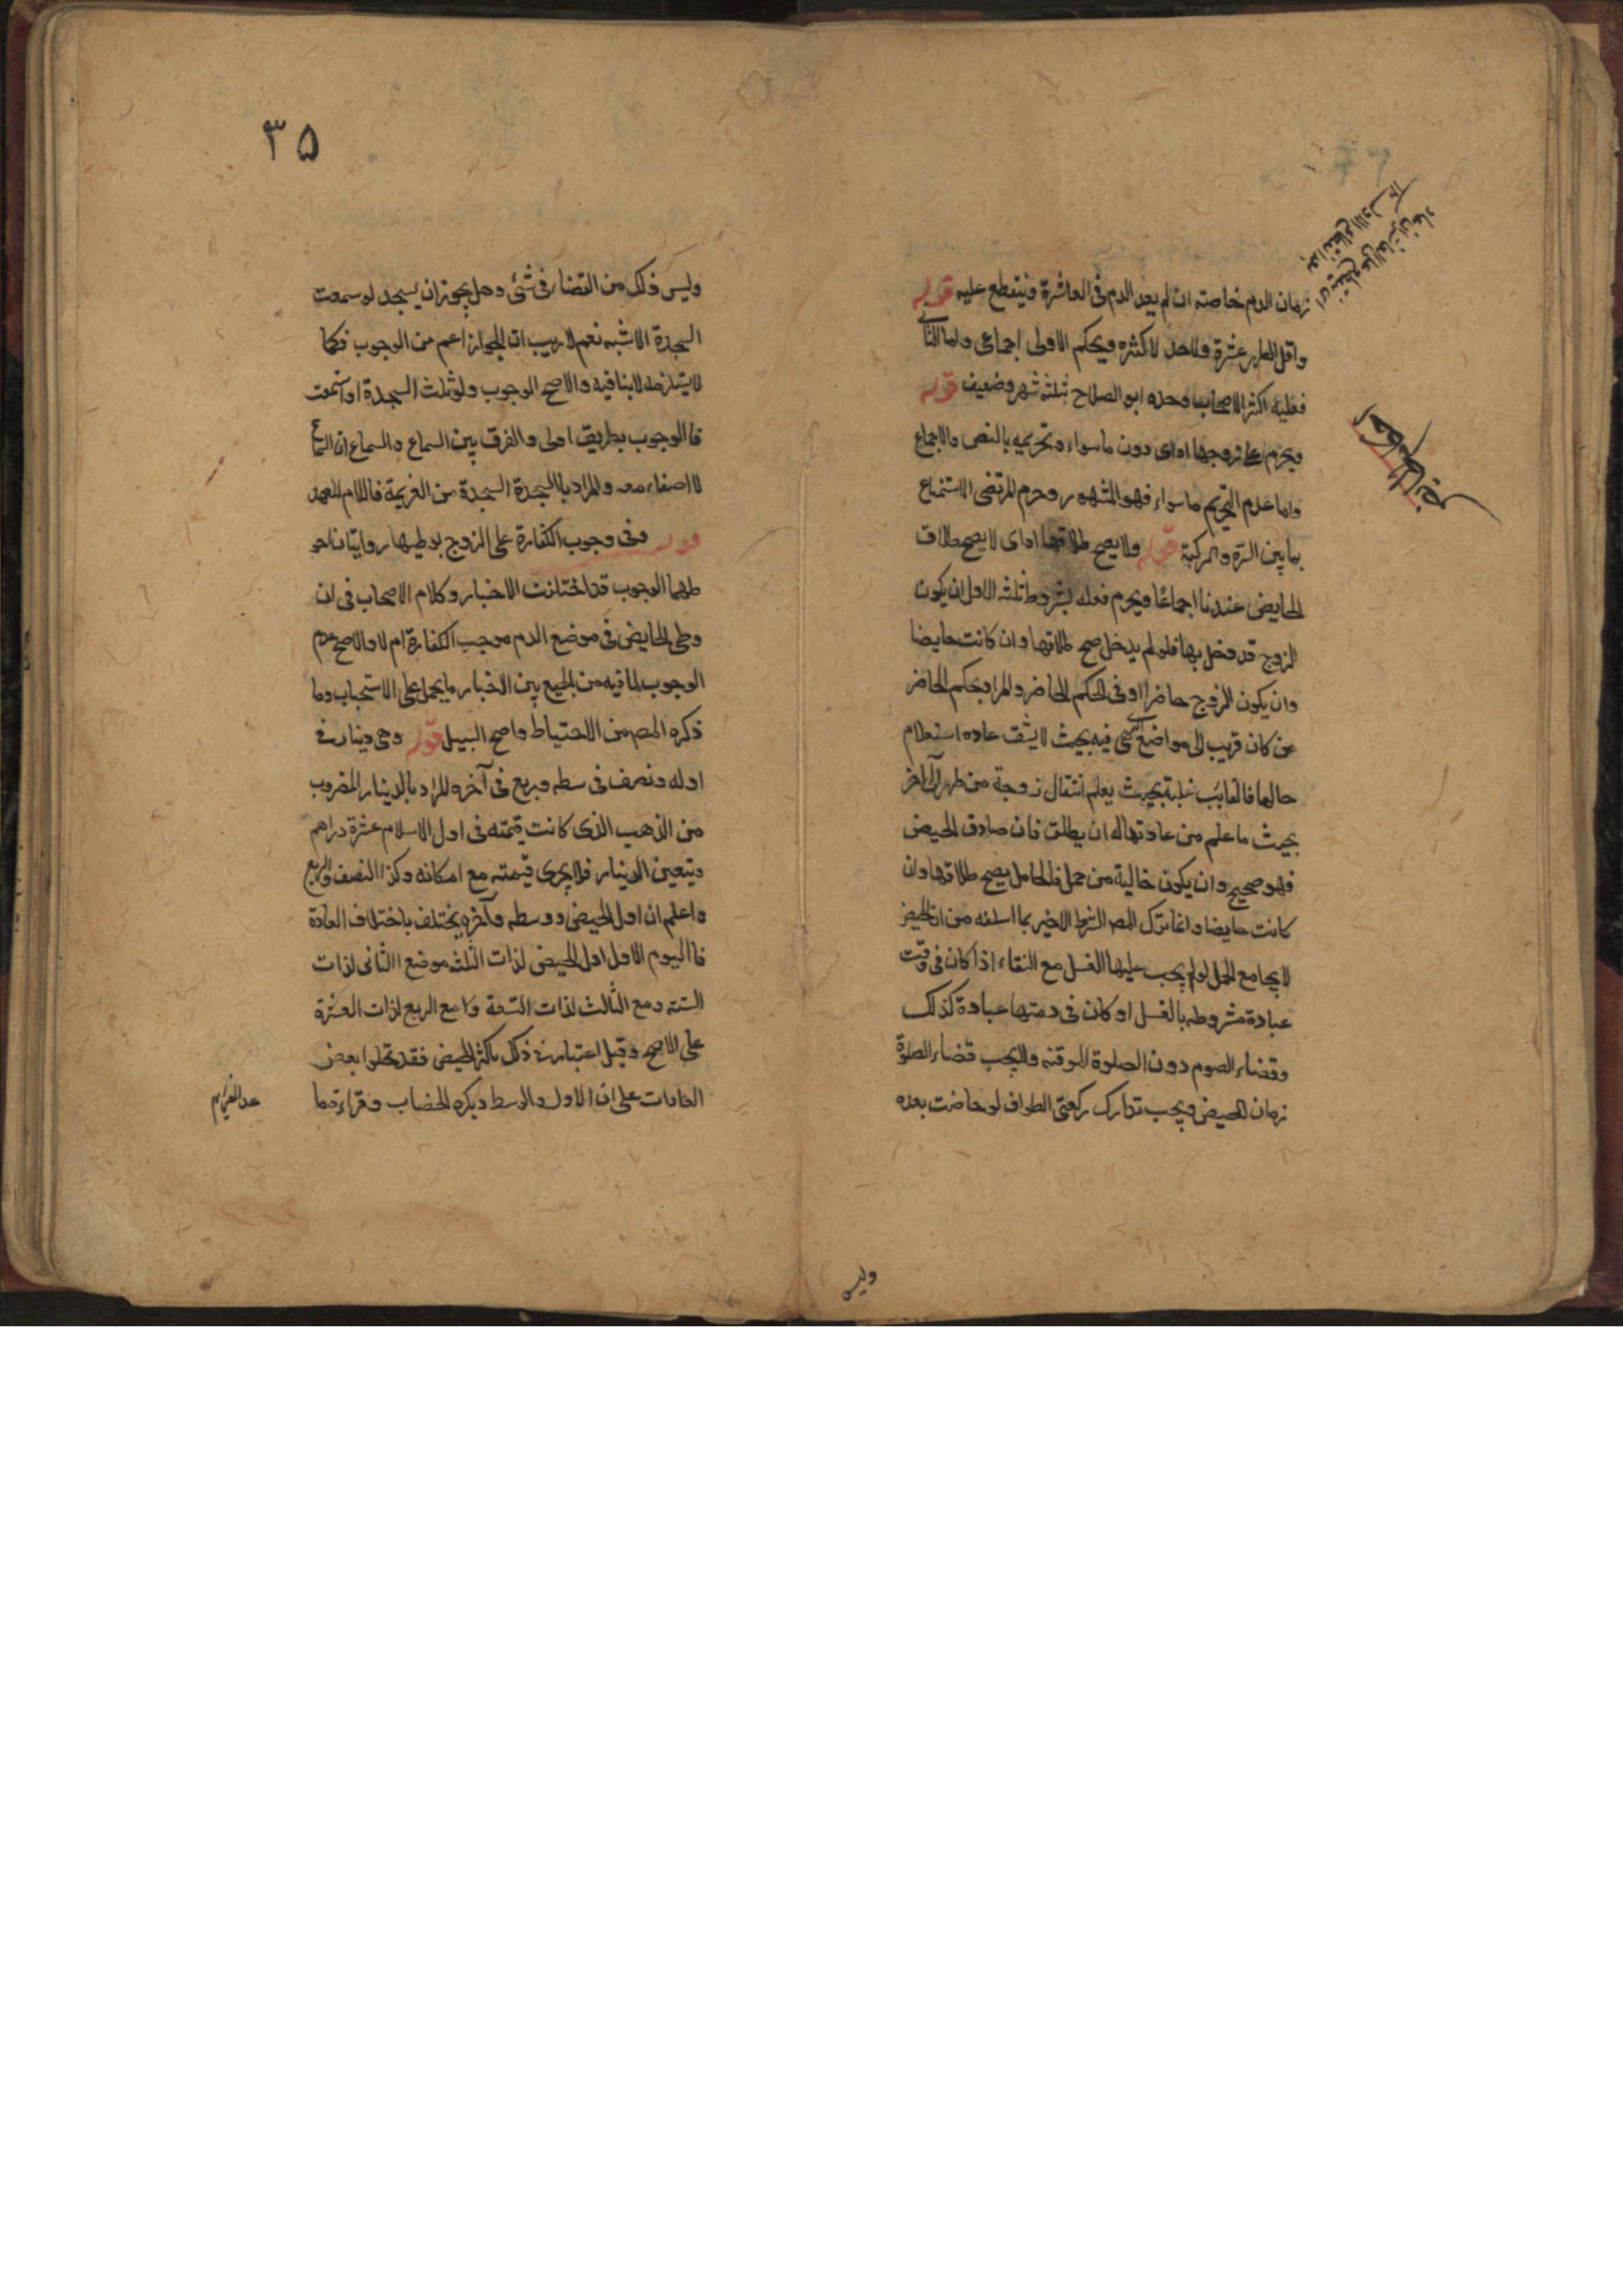 زمان الدم خاصته ان لم يعد الدم فى العاشرة وينقطع عليه قوله
واقل الطهر عشرة ولاحد لاكثره وبحكم الاولى اجماعى واما الثانى
فعليه اكثر الاصحاب وحده ابو الصلاح بثلثه شهر وضعيف قوله
ويحرم على زوجها اه اى دون ما سواء وتحريمه بالنص والاجماع
واما عدم التحريم ما سواء فهو المشهور وحرم المرتضى الاستمتاع
بما بين السرة والركبة قوله ولا يصح طلاقها اه اى لا يصح طلاق
الحايض عندنا اجماعا ويحرم فعله بشروط ثلثه الاول ان يكون
الزوج قد دخل بها فلو لم يدخل صح طلاقها وان كانت حايضا
وان يكون الزوج حاضرا او فى الحكم الحاضر والمراد بحكم الحاضر
من كان قريب الى مواضع فيه بحيث لا يشق عاده استعلام
حالها فالغايب غلبة بحيث يعلم انتقال زوجة من طهر الى آخر
بحيث ما علم من عادتها له ان يطلق فان صادف الحيض
فهو صحيح وان يكون خالية من حمل فالحامل يصح طلاقها وان
كانت حايضا وانما ترك المصـ الشرط الاخير بما اسلفه من ان الحيض
لا يجامع الحمل لو لم يجب عليها الغسل مع النقاء اذا كان فى وقت
عبادة مشروطه بالغسل او كان فى ذمتها عبادة كذلك
وقضاء الصوم دون الصلوة الموقته ولا يجب قضاء الصلوة
زمان الحيض ويجب تدارك ركعتى الطواف لو حاضت بعده
وليس
٣٥
وليس ذلك من القضاء فى شئ وهل يجوز ان يسجد لو سمعت
السجدة الاشبه نعم لا ريب ان الجواز اعم من الوجوب فكما
لا يستلزمه لا ينافيه والاصح الوجوب ولو تلت السجدة او استمعت
فالوجوب بطريق اولى والفرق بين السماع والسماع ان السماع
لا اصغاء معه والمراد بالسجدة السجدة من العزيمة فاللام للعهد
قوله وفى وجوب الكفارة على الزوج بوطيها روايتان احو
طهما الوجوب قد اختلفت الاخبار وكلام الاصحاب فى ان
وطى الحايض فى موضع الدم موجب الكفارة ام لا والاصح عدم
الوجوب لما فيه من الجمع بين الاخبار ما يحمل على الاستحباب وما
ذكره المصـ من الاحتياط واضح السبيل قوله وهى دينار فى
اوله ونصف فى سطه وربع فى آخره المراد بالدينار المضروب
من الذهب الذى كانت قيمته فى اول الاسلام عشرة دراهم
ويتعين الدينار فلا يجرى قيمته مع امكانه وكذا النصف والربع
واعلم ان اول الحيض ووسطه وآخره يختلف باختلاف العادة
فاليوم الاول اول الحيض لذات الثلثه موضع الثانى لذات
الستة ومع الثالث لذات التسعة و مع الربع لذات العشرة
على الاصح وقيل اعتبار فى ذلك باكثر الحيض فقد تخلوا بعض
العادات على ان الاول والوسط ويكره الخضاب وقراءة ما
عدا العزايم